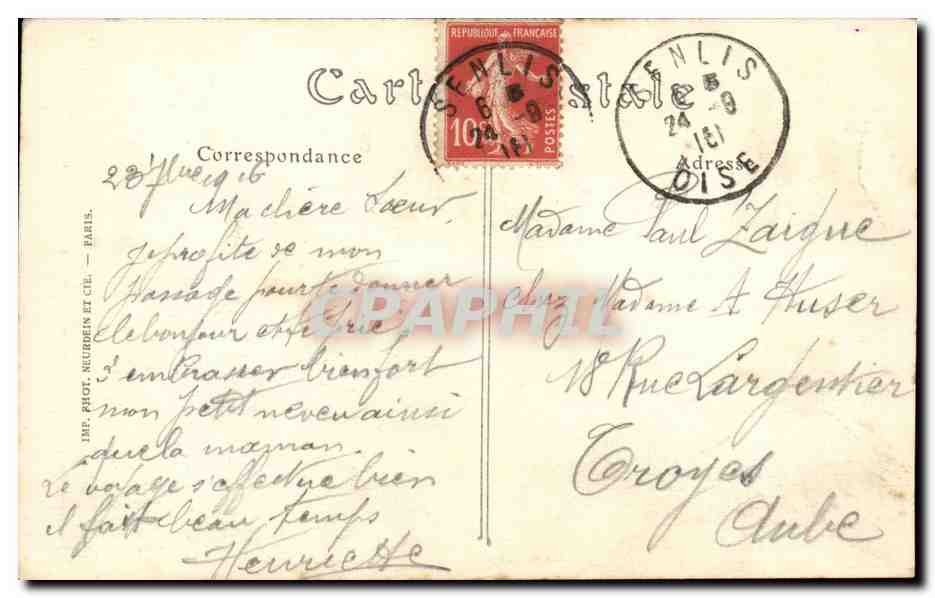 Carte Postale
REPUBLIQUE FRANÇAISE
10c
POSTES
SENLIS
6 5
24 -9
16
SENLIS
6 5
24 -9
16
OISE
Correspondance
Adresse
IMP. PHOT. NEURDEIN ET CIE. — PARIS.
23 7bre 1916
Ma chère Soeur,
je profite de mon
passage pour te donner
le bonjour et te prie
d'embrasser bien fort
mon petit neveu ainsi
que la maman.
Le voyage s'effectue bien
il fait beau temps
Henriette
Madame Paul Zaigue
chez Madame A Huser
18 Rue Largentier
Troyes
Aube
CPAPHIL